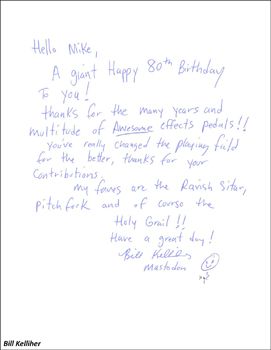 Hello Mike,
A giant Happy 80th Birthday
To you!
thanks for the many years and
multitude of Awesome effects pedals!!
you've really changed the playing field
for the better, thanks for your
Contributions.
my faves are the Ravish Sitar,
pitchfork and of corse the
Holy Grail!!
Have a great day!
Bill Kelliher
Mastodon
Bill Kelliher